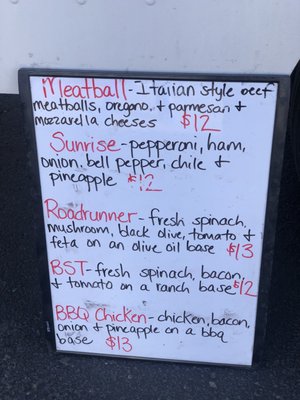 Meatball - Italian style beef
meatballs, oregano, & parmesan &
mozzarella cheeses $12
Sunrise - pepperoni, ham,
onion, bell pepper, chile &
pineapple $12
Roadrunner - fresh spinach,
mushroom, black olive, tomato &
feta on an olive oil base $13
BST - fresh spinach, bacon,
& tomato on a ranch base $12
BBQ Chicken - chicken, bacon,
onion & pineapple on a bbq
base $13